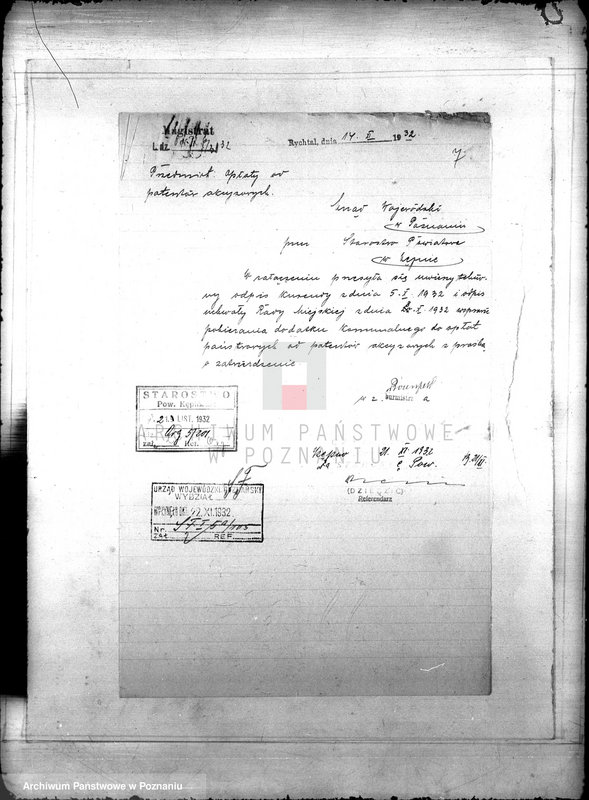 Magistrat
L. dz. 32
Rychtal, dnia 14 XI 1932
7
Przedmiot opłaty od
patentów akcyzowych.
Urząd Wojewódzki
w Poznaniu
przez Starostwo Powiatowe
w Kępnie
W załączeniu przesyła się uwierzytelnio-
ny odpis kurendy z dnia 5. I 1932 i odpis
uchwały Rady Miejskiej z dnia X. 1932 w sprawie
pobierania dodatku komunalnego do opłat
państwowych od patentów akcyzowych z prośbą
o zatwierdzenie.
w z. Burmistrza
STAROSTWO
Pow. Kępiński
21 LIST. 1932
Org 5/201
zał. Ref.
ARCHIWUM PAŃSTWOWE
W POZNANIU
Kępno 21. XI 1932
(DZIĘCIĆ)
Referendarz
URZĄD WOJEWÓDZKI POZNAŃSKI
WYDZIAŁ
WPŁYNĘŁO DN. 22.XI.1932
Nr.
ZAŁ. 2 REF.
Archiwum Państwowe w Poznaniu